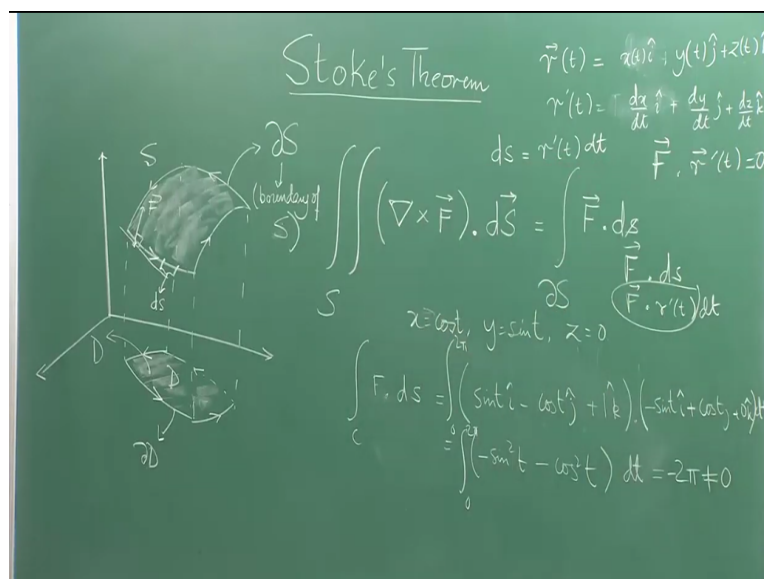 Stoke's Theorem
r⃗(t) = x(t)î + y(t)ĵ + z(t)
r'(t) = dx/dt î + dy/dt ĵ + dz/dt k̂
ds = r'(t) dt
F⃗ . r⃗'(t) = 0
S
∂S
(boundary of S)
F⃗
ds
∬_S (∇ × F⃗) . dS⃗ = ∫_∂S F⃗ . ds
F⃗ . ds
F⃗ . r'(t) dt
x = cost, y = sint, z = 0
D
D
∂D
∫_C F . ds = ∫_0^2π (sint î - cost ĵ + 1k̂) . (-sint î + cost j + 0k̂) dt
= ∫_0^2π (-sin²t - cos²t) dt = -2π ≠ 0